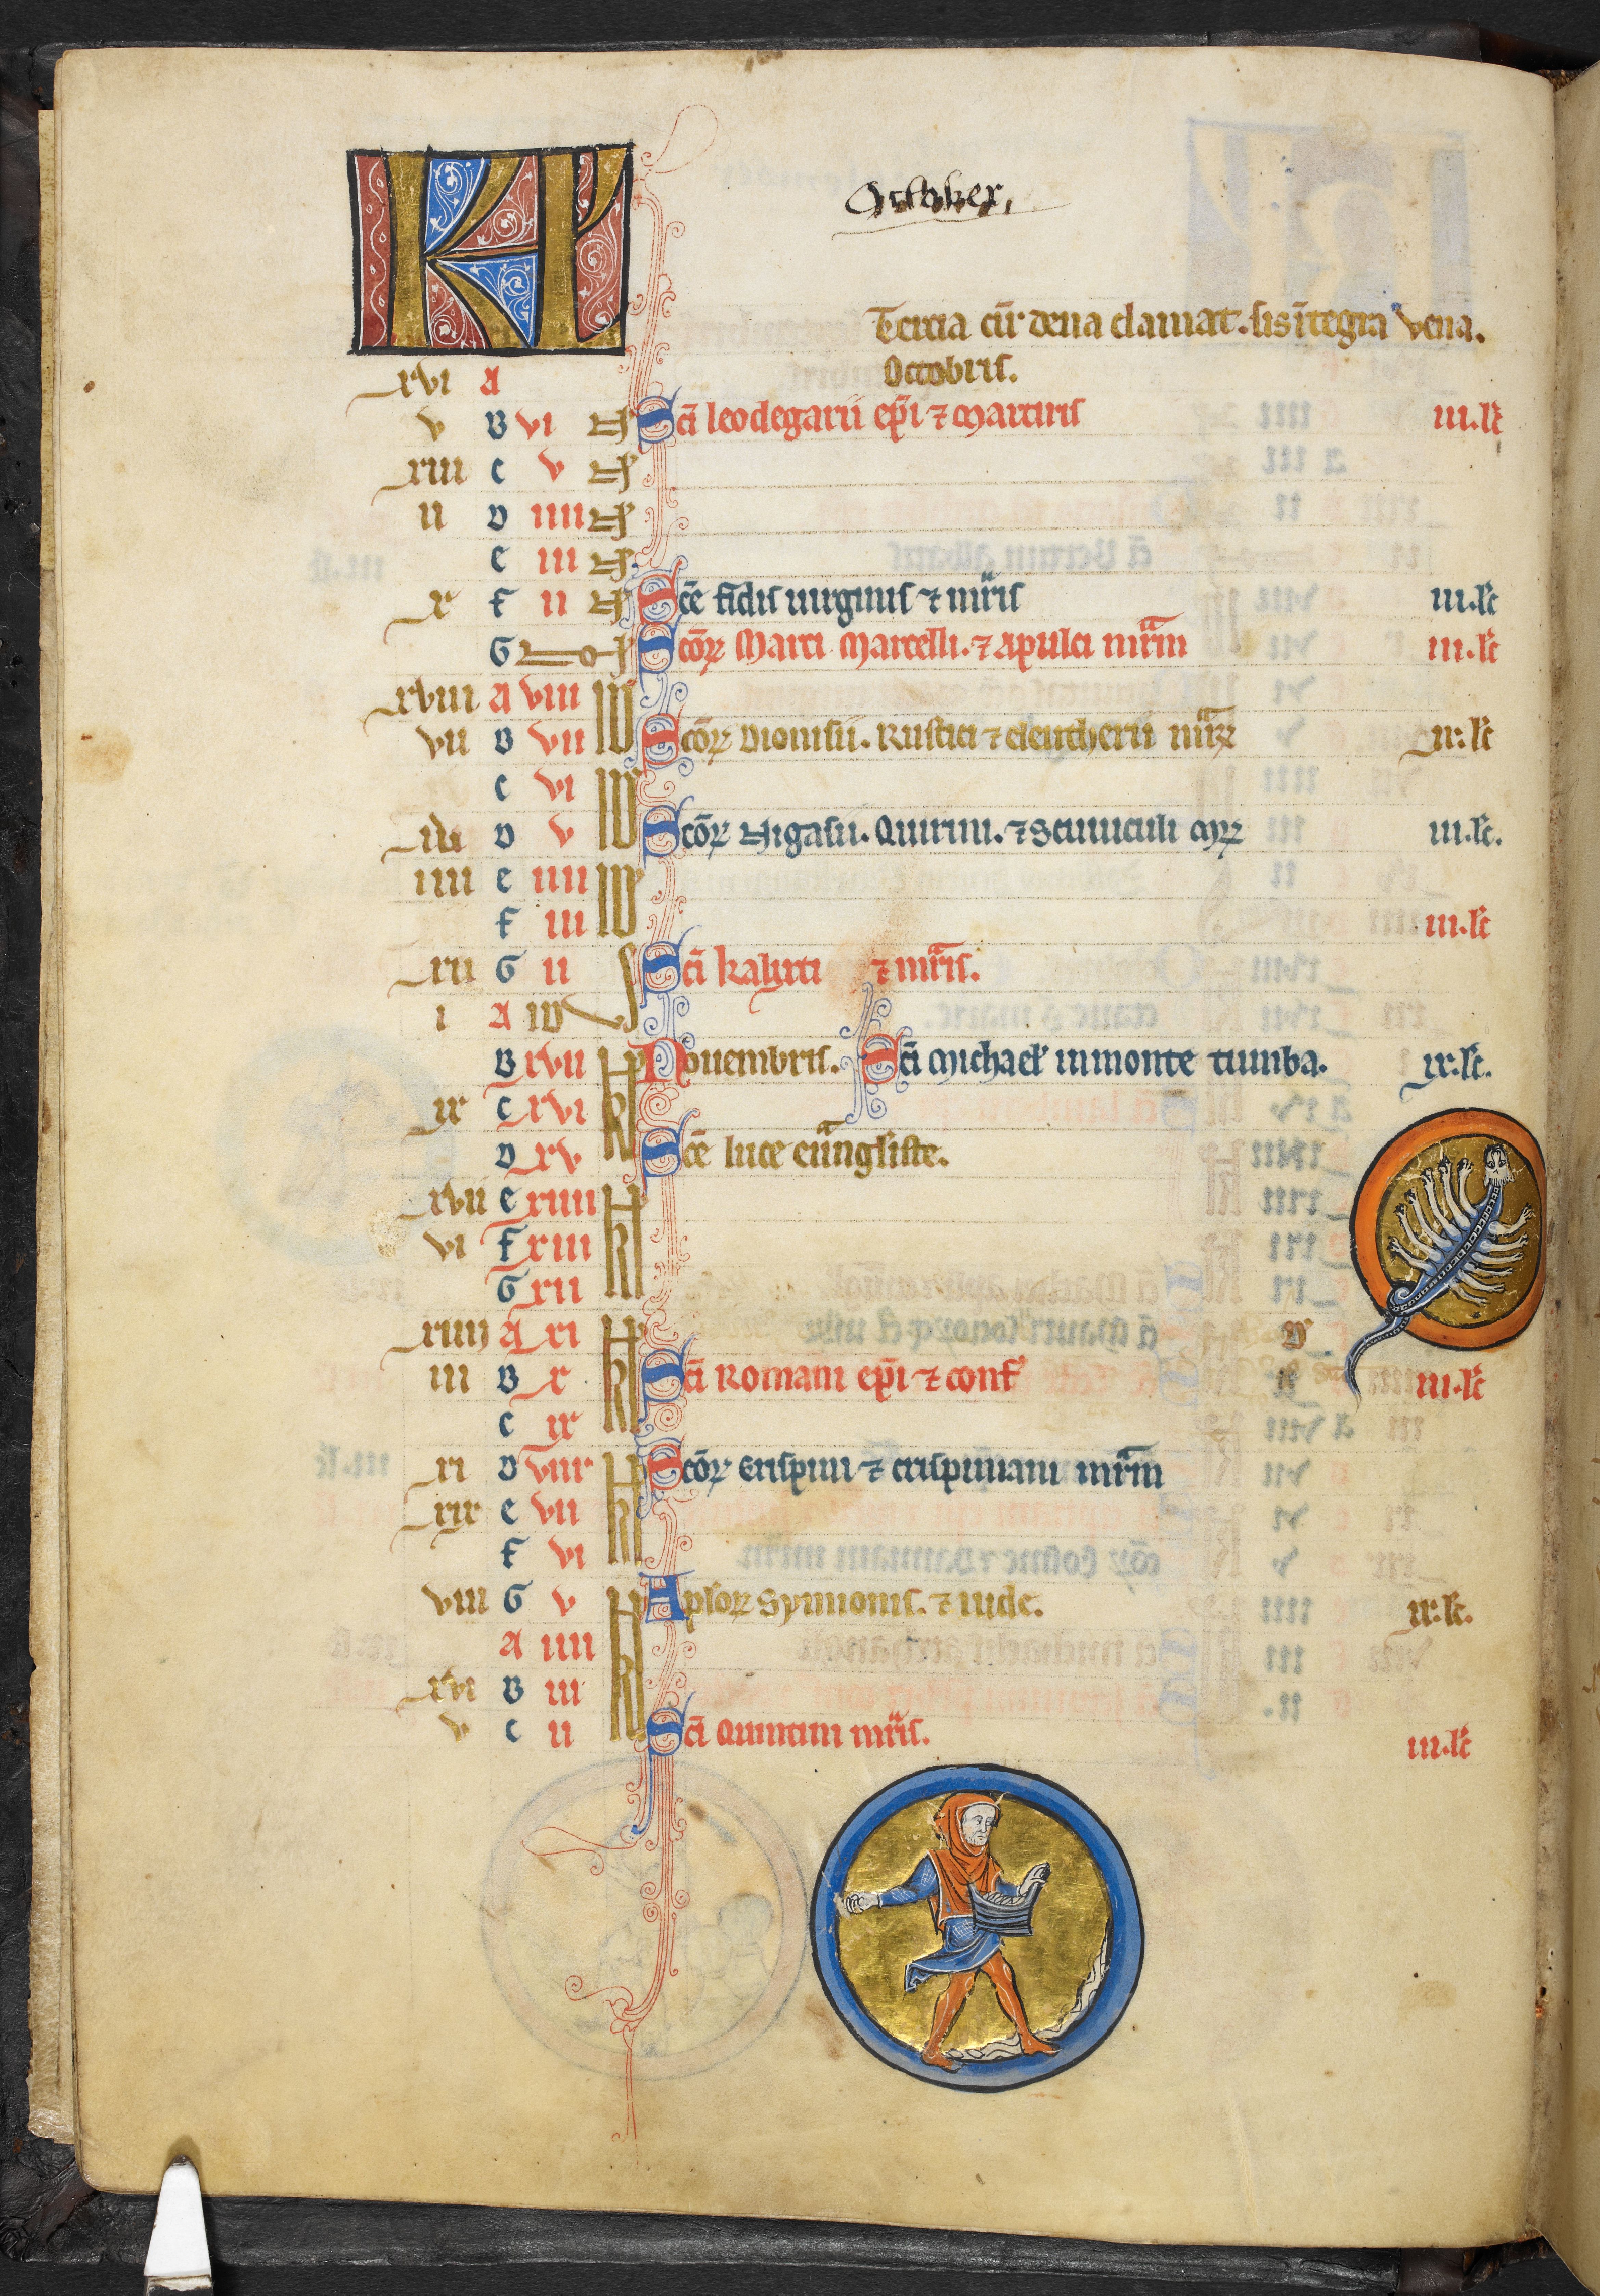 KL
October,
Tercia cū dena clamat. sis ītegra vena.
Octobris.
xvi A
v B vi N᷒ Scī leodegarii ep̄i ⁊ Martiris iii.lc̄
xiii C v N᷒
ii D iiii N᷒
E iii N᷒
x F ii N᷒ Scē fidis uirginis ⁊ mr̄is iii.lc̄
G No᷒ Scōꝝ Marci Marcelli. ⁊ Apulei mr̄m iii.lc̄
xviii A viii Id᷒
vii B vii Scōꝝ Dionisii. Rustici ⁊ eleutherii mr̄ꝝ ix.lc̄
C vi Id᷒
D v Scōꝝ Nigasii. Quirini. ⁊ Scuuiculi Mꝝ iii.lc̄.
iiii E iiii Id᷒
F iii iii.lc̄
xii G ii Scī kalixti ⁊ mr̄is.
i A Id᷒
B xvii kl᷒ Nouembris. Scī Michael᷒ in monte tumba. ix.lc̄.
ix C xvi
D xv Scē luce eu̅ngliste.
xvii E xiiii kl᷒
vi F xiii
G xii
xiiii A xi kl᷒
iii B x Scī Romani ep̄i ⁊ conf᷒ iii.lc̄
C ix
xi D viii kl᷒ Scōꝝ Crispini ⁊ crispiniani mr̄m
xix E vii
F vi
viii G v kl᷒ Aplōꝝ Symonis. ⁊ iude. ix.lc̄.
A iiii
xvi B iii
v C ii Scī Quintini mr̄is. iii.lc̄